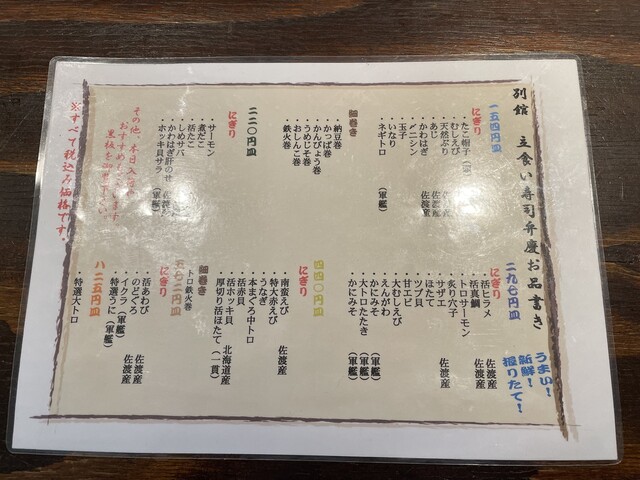 別館 立食い寿司弁慶お品書き
うまい!
新鮮!
握りたて!
一五四円皿
にぎり
・たこ帽子(軍艦)
・むしえび
・天然ぶり 佐渡産
・あじ 佐渡産
・かわはぎ 佐渡産
・〆ニシン
・玉子
・いなり
・ネギトロ (軍艦)
細巻き
・納豆巻
・かっぱ巻
・かんぴょう巻
・うめじそ巻
・おしんこ巻
・鉄火巻
二二〇円皿
にぎり
・サーモン
・煮だこ
・活たこ
・しめサバ
・かわはぎ肝のせ 佐渡産
・ホッキ貝サラ (軍艦)
その他、本日入荷の
おすすめ
黒板を御覧下さい。
※すべて税込み価格です。
二九七円皿
にぎり
・活ヒラメ 佐渡産
・活真鯛 佐渡産
・トロサーモン
・炙り穴子
・サザエ 佐渡産
・ほたて
・ツブ貝
・甘エビ
・大むしえび
・えんがわ
・かにみそ (軍艦)
・大トロたたき (軍艦)
・かにみそ (軍艦)
四四〇円皿
にぎり
・南蛮えび 佐渡産
・特大赤えび
・うなぎ
・本まぐろ中トロ
・活赤貝
・活ホッキ貝 北海道産
・厚切り活ほたて(一貫)
細巻き
・トロ鉄火巻
五七二円皿
にぎり
・活あわび 佐渡産
・のどぐろ 佐渡産
・イクラ(軍艦)
・特選うに(軍艦)
八二五円皿
・特選大トロ